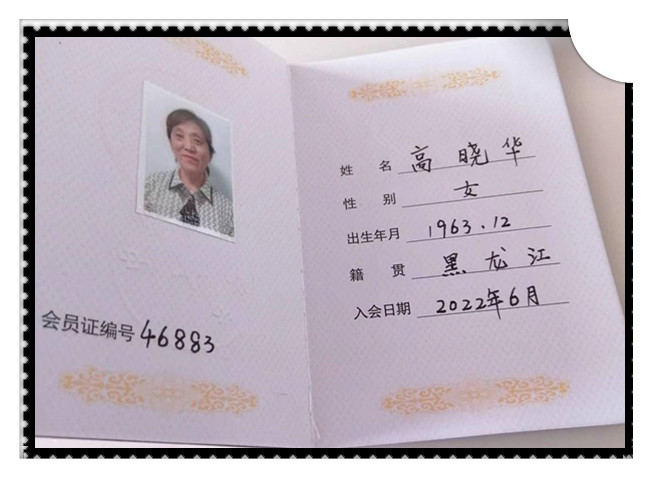 会员证编号 46883
姓 名 高晓华
性 别 女
出生年月 1963.12
籍 贯 黑龙江
入会日期 2022年6月